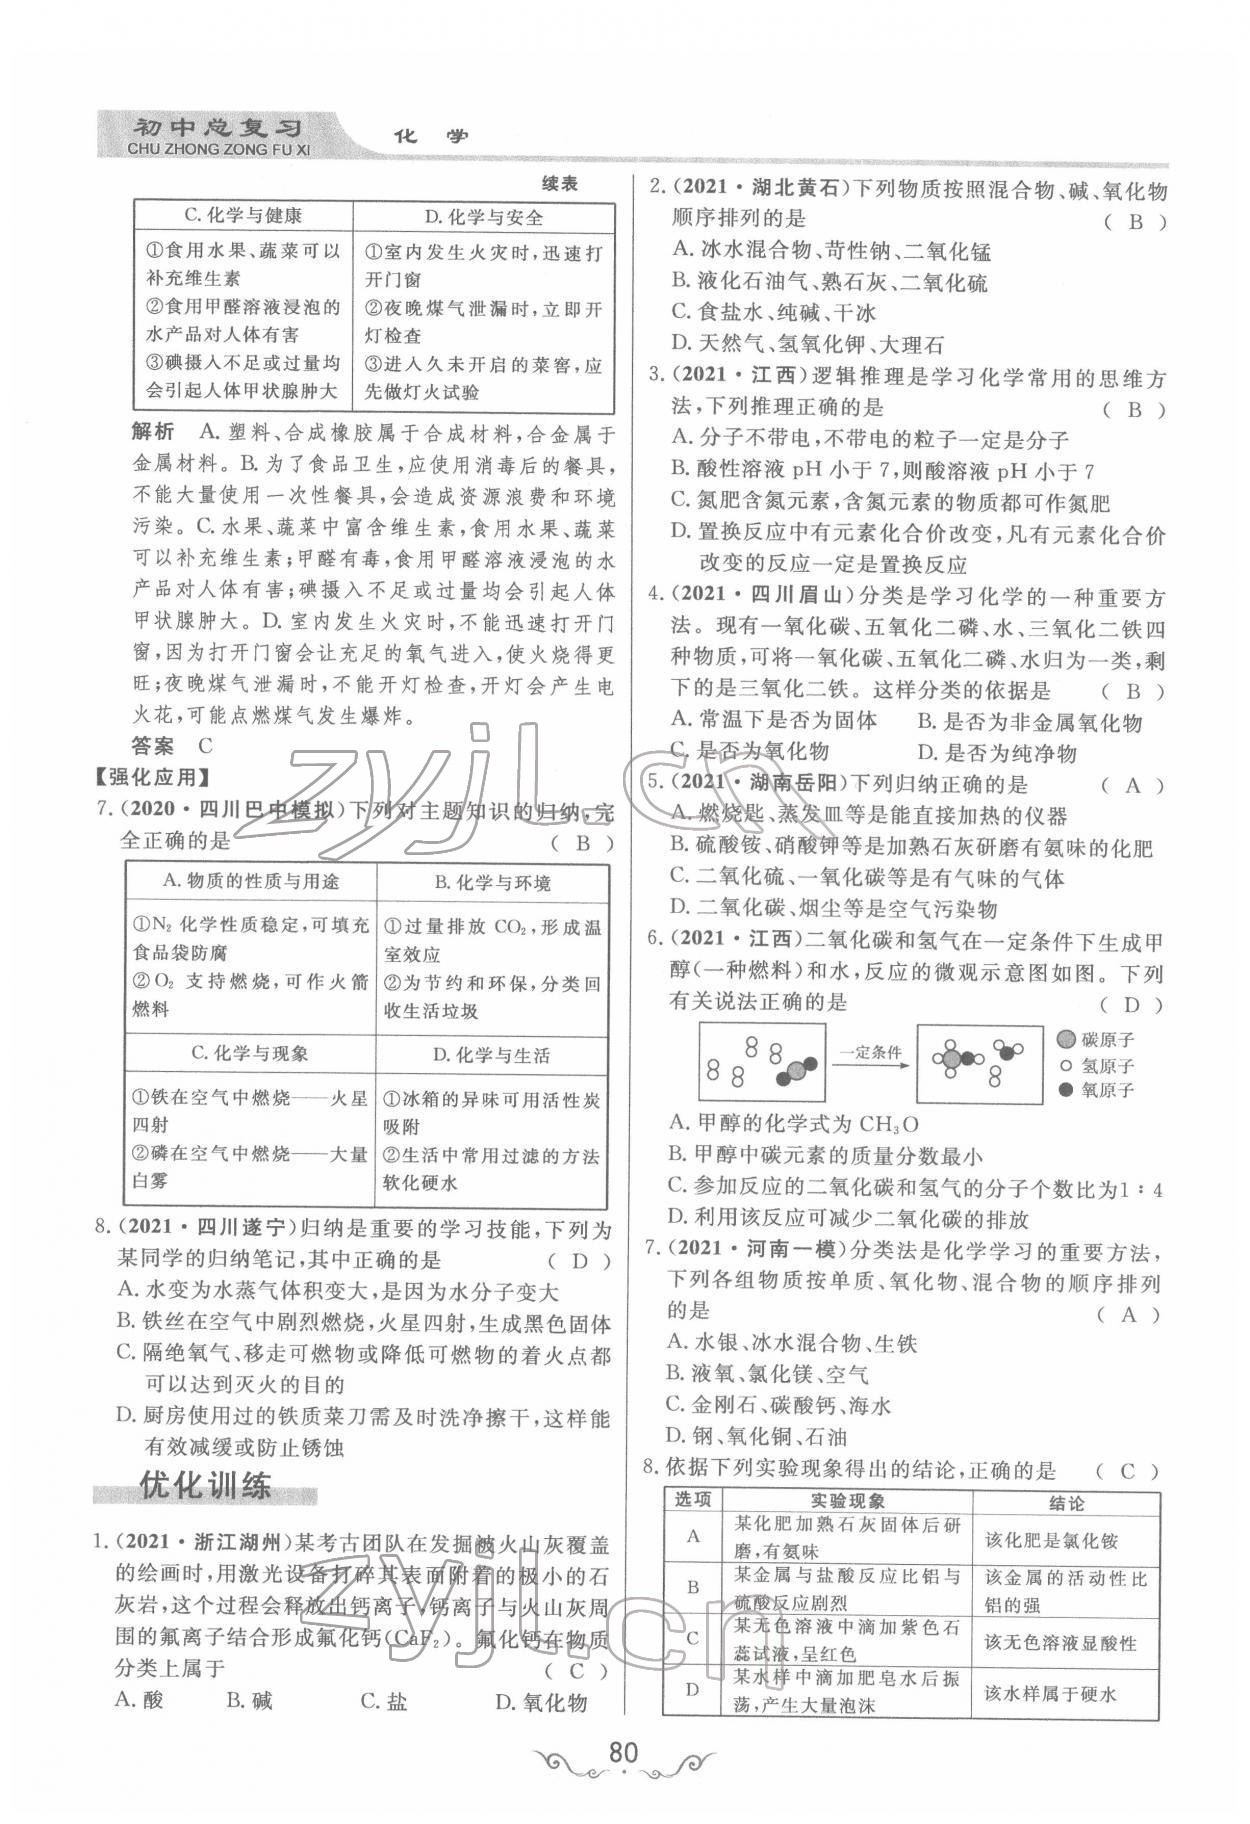 初中总复习
CHU ZHONG ZONG FU XI
化 学
续表
C.化学与健康 D.化学与安全
①食用水果、蔬菜可以
补充维生素
②食用甲醛溶液浸泡的
水产品对人体有害
③碘摄入不足或过量均
会引起人体甲状腺肿大
①室内发生火灾时,迅速打
开门窗
②夜晚煤气泄漏时,立即开
灯检查
③进入久未开启的菜窖,应
先做灯火试验
解析 A.塑料、合成橡胶属于合成材料,合金属于
金属材料。B.为了食品卫生,应使用消毒后的餐具,
不能大量使用一次性餐具,会造成资源浪费和环境
污染。C.水果、蔬菜中富含维生素,食用水果、蔬菜
可以补充维生素;甲醛有毒,食用甲醛溶液浸泡的水
产品对人体有害;碘摄入不足或过量均会引起人体
甲状腺肿大。D.室内发生火灾时,不能迅速打开门
窗,因为打开门窗会让充足的氧气进入,使火烧得更
旺;夜晚煤气泄漏时,不能开灯检查,开灯会产生电
火花,可能点燃煤气发生爆炸。
答案 C
【强化应用】
7.(2020·四川巴中模拟)下列对主题知识的归纳,完
全正确的是 ( B )
A.物质的性质与用途 B.化学与环境
①N₂ 化学性质稳定,可填充
食品袋防腐
②O₂ 支持燃烧,可作火箭
燃料
①过量排放 CO₂,形成温
室效应
②为节约和环保,分类回
收生活垃圾
C.化学与现象 D.化学与生活
①铁在空气中燃烧——火星
四射
②磷在空气中燃烧——大量
白雾
①冰箱的异味可用活性炭
吸附
②生活中常用过滤的方法
软化硬水
8.(2021·四川遂宁)归纳是重要的学习技能,下列为
某同学的归纳笔记,其中正确的是 ( D )
A.水变为水蒸气体积变大,是因为水分子变大
B.铁丝在空气中剧烈燃烧,火星四射,生成黑色固体
C.隔绝氧气、移走可燃物或降低可燃物的着火点都
可以达到灭火的目的
D.厨房使用过的铁质菜刀需及时洗净擦干,这样能
有效减缓或防止锈蚀
优化训练
1.(2021·浙江湖州)某考古团队在发掘被火山灰覆盖
的绘画时,用激光设备打碎其表面附着的极小的石
灰岩,这个过程会释放出钙离子,钙离子与火山灰周
围的氟离子结合形成氟化钙(CaF₂)。氟化钙在物质
分类上属于 ( C )
A.酸 B.碱 C.盐 D.氧化物
2.(2021·湖北黄石)下列物质按照混合物、碱、氧化物
顺序排列的是 ( B )
A.冰水混合物、苛性钠、二氧化锰
B.液化石油气、熟石灰、二氧化硫
C.食盐水、纯碱、干冰
D.天然气、氢氧化钾、大理石
3.(2021·江西)逻辑推理是学习化学常用的思维方
法,下列推理正确的是 ( B )
A.分子不带电,不带电的粒子一定是分子
B.酸性溶液 pH 小于 7,则酸溶液 pH 小于 7
C.氮肥含氮元素,含氮元素的物质都可作氮肥
D.置换反应中有元素化合价改变,凡有元素化合价
改变的反应一定是置换反应
4.(2021·四川眉山)分类是学习化学的一种重要方
法。现有一氧化碳、五氧化二磷、水、三氧化二铁四
种物质,可将一氧化碳、五氧化二磷、水归为一类,剩
下的是三氧化二铁。这样分类的依据是 ( B )
A.常温下是否为固体 B.是否为非金属氧化物
C.是否为氧化物 D.是否为纯净物
5.(2021·湖南岳阳)下列归纳正确的是 ( A )
A.燃烧匙、蒸发皿等是能直接加热的仪器
B.硫酸铵、硝酸钾等是加熟石灰研磨有氨味的化肥
C.二氧化硫、一氧化碳等是有气味的气体
D.二氧化碳、烟尘等是空气污染物
6.(2021·江西)二氧化碳和氢气在一定条件下生成甲
醇(一种燃料)和水,反应的微观示意图如图。下列
有关说法正确的是 ( D )
一定条件
碳原子
氢原子
氧原子
A.甲醇的化学式为 CH₃O
B.甲醇中碳元素的质量分数最小
C.参加反应的二氧化碳和氢气的分子个数比为1∶4
D.利用该反应可减少二氧化碳的排放
7.(2021·河南一模)分类法是化学学习的重要方法,
下列各组物质按单质、氧化物、混合物的顺序排列
的是 ( A )
A.水银、冰水混合物、生铁
B.液氧、氯化镁、空气
C.金刚石、碳酸钙、海水
D.钢、氧化铜、石油
8.依据下列实验现象得出的结论,正确的是 ( C )
选项 实验现象 结论
A 某化肥加熟石灰固体后研
磨,有氨味 该化肥是氯化铵
B 某金属与盐酸反应比铝与
硫酸反应剧烈 该金属的活动性比
铝的强
C 某无色溶液中滴加紫色石
蕊试液,呈红色 该无色溶液显酸性
D 某水样中滴加肥皂水后振
荡,产生大量泡沫 该水样属于硬水
80
zyjl.cn
zyjl.cn